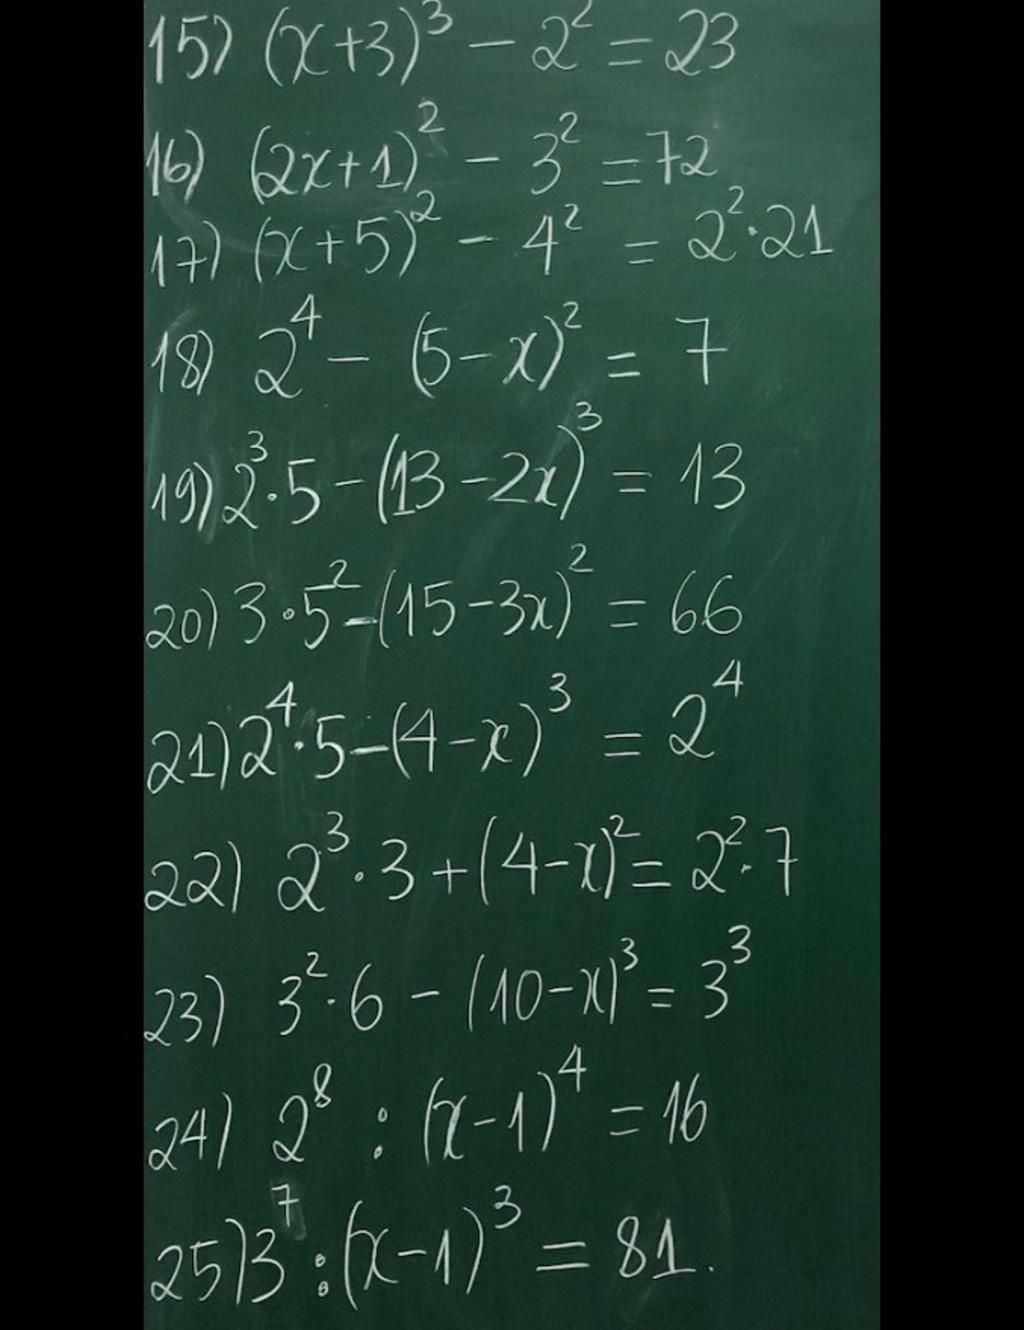 15) (x+3)³ − 2² = 23
16) (2x+1)² − 3² = 72
17) (x+5)² − 4² = 2²·21
18) 2⁴ − (5−x)² = 7
19) 2³·5 − (13−2x)³ = 13
20) 3·5² − (15−3x)² = 66
21) 2⁴·5 − (4−x)³ = 2⁴
22) 2³·3 + (4−x)² = 2²·7
23) 3²·6 − (10−x)³ = 3³
24) 2⁸ : (x−1)⁴ = 16
25) 3⁷ : (x−1)³ = 81.